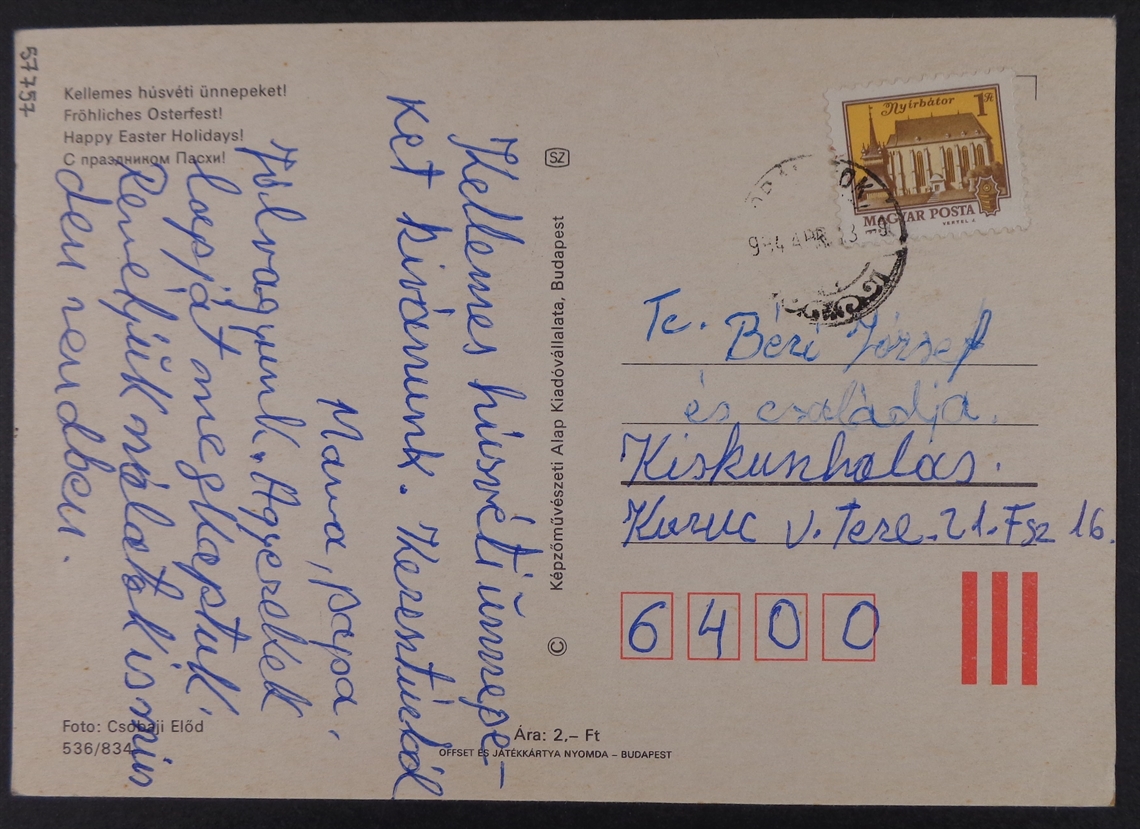 57757
Kellemes húsvéti ünnepeket!
Fröhliches Osterfest!
Happy Easter Holidays!
С праздником Пасхи!
Kellemes húsvéti ünnepe-
ket kivánunk. Keresztúrból
Mama, papa.
Jól vagyunk. A gyerekek
lapját megkaptuk.
Reméljük nálatok is min
den rendben.
Foto: Csobaji Előd
536/834
SZ
Képzőművészeti Alap Kiadóvállalata, Budapest
©
Ára: 2,– Ft
OFFSET ÉS JÁTÉKKÁRTYA NYOMDA – BUDAPEST
Nyírbátor 1 Ft
MAGYAR POSTA
VERTEL J.
Te. Béri József
és családja.
Kiskunhalas.
Kuruc v. tere. 21. Fsz 16.
6400